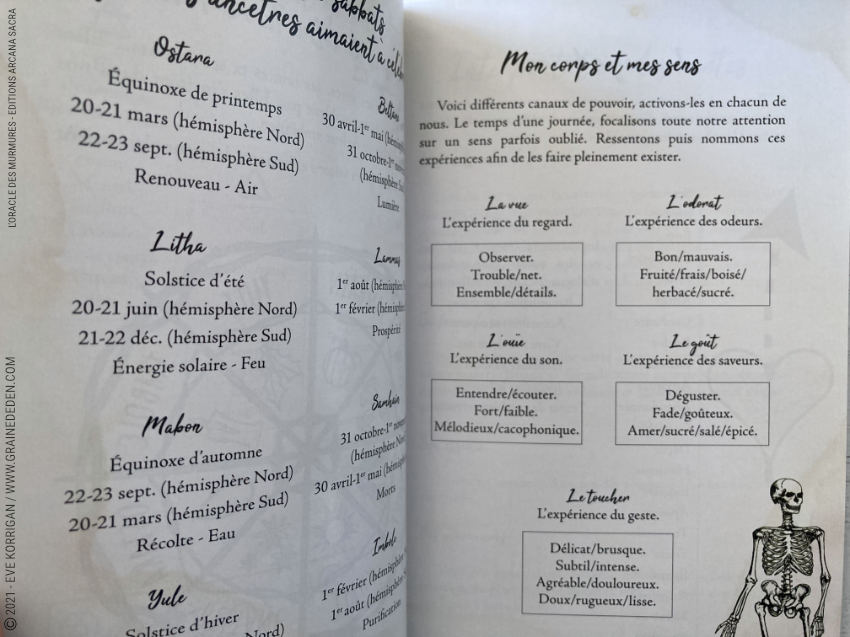 sabbats
ancêtres aimaient à
Ostara
Équinoxe de printemps
20-21 mars (hémisphère Nord)
22-23 sept. (hémisphère Sud)
Renouveau - Air
Litha
Solstice d'été
20-21 juin (hémisphère Nord)
21-22 déc. (hémisphère Sud)
Énergie solaire - Feu
Mabon
Équinoxe d'automne
22-23 sept. (hémisphère Nord)
20-21 mars (hémisphère Sud)
Récolte - Eau
Yule
Solstice d'hiver
Nord)
30 avril-1er mai
31 octobre-1er
(hémisphère
Lumière
1er août
1er février
Prospérité
Samhain
31 octobre-1er
(hémisphère
30 avril-1er mai
Morts
Imbolc
1er février
1er août
Purification
Mon corps et mes sens
Voici différents canaux de pouvoir, activons-les en chacun de
nous. Le temps d'une journée, focalisons toute notre attention
sur un sens parfois oublié. Ressentons puis nommons ces
expériences afin de les faire pleinement exister.
La vue
L'expérience du regard.
Observer.
Trouble/net.
Ensemble/détails.
L'odorat
L'expérience des odeurs.
Bon/mauvais.
Fruité/frais/boisé/
herbacé/sucré.
L'ouïe
L'expérience du son.
Entendre/écouter.
Fort/faible.
Mélodieux/cacophonique.
Le goût
L'expérience des saveurs.
Déguster.
Fade/goûteux.
Amer/sucré/salé/épicé.
Le toucher
L'expérience du geste.
Délicat/brusque.
Subtil/intense.
Agréable/douloureux.
Doux/rugueux/lisse.
© 2021 - EVE KORRIGAN / WWW.GRAINEDEDEN.COM
L'ORACLE DES MURMURES - EDITIONS ARCANA SACRA